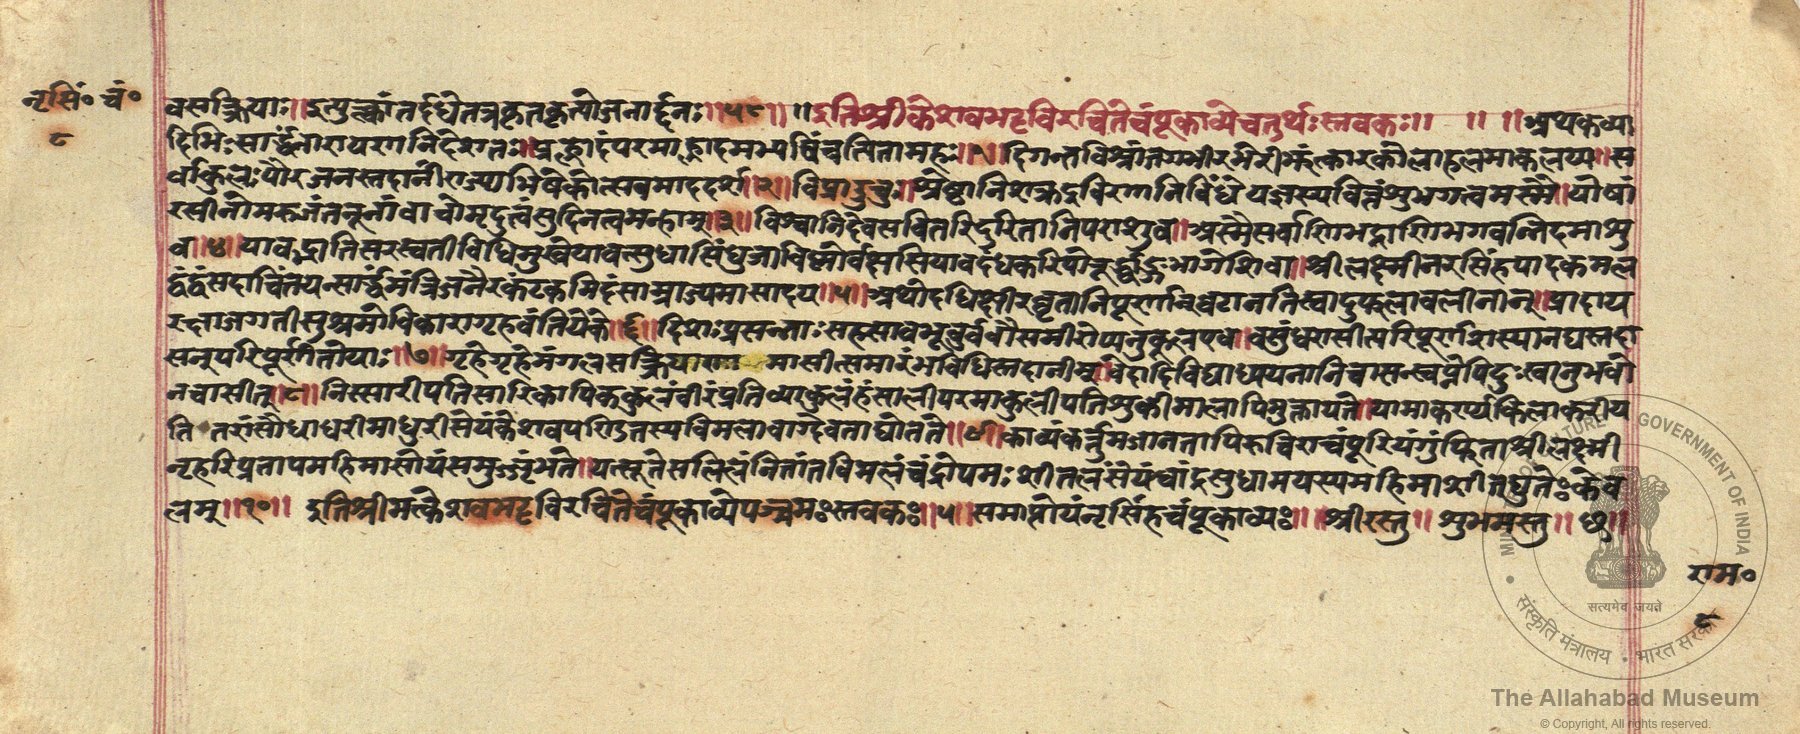 नृसिं॰ चं॰
८
वसत्क्रियाः॥इत्युक्त्वांतर्दधेतत्रकृतकृत्योजनार्द्दनः॥५८॥ ॥इतिश्रीकेशवभट्टविरचितेचंपूकाव्येचतुर्थःस्तवकः॥ ॥ ॥अथकव्या
दिभिःसार्द्धंनारायणनिदेशतः॥प्रह्लादंपरमाह्लादमभ्यषिंचत्पितामहः॥१॥दिगन्तविश्रांतगभीरभेरीझंत्कारकोलाहलमाकलय्य॥स
र्वाकुलःपौरजनस्तदानींराज्याभिषेकोत्सवमाददर्श॥२॥विप्राऊचुः॥श्रेष्ठानिशक्रद्रविणानिविंधेयज्ञस्यवित्तंशुभगत्वमस्मै॥योषां
रसीनामरुजंतनूनांवाचोमृदुत्वंसुदिनत्वमन्हाम्॥३॥विश्वानिदेवसवितरिदुरितानिपराशुव॥अस्मैसर्वाणिभद्राणिभगवन्तिदमाशु
वा॥४॥यावद्भातिसरस्वतीविधिमुखेयावत्सुधासिंधुजाविष्णोर्वक्षसियावदंधकरिपोरूर्द्ध्वाङ्गभागेशिवा॥श्रीलक्ष्मीनरसिंहपादकमल
द्वंद्वंसदाचिंतयन्सार्द्धंमंत्रिजनैरकंटकमिदंसाम्राज्यमासादय॥५॥अथोदधिक्षीरघृतानिपूर्णान्विघटानतिस्वादुफलावलीनान्॥प्रादाय
रत्नाजगतीसुश्रमोविकारागृहवंतियेके॥६॥दिशःप्रसन्नाःसहसावभूवुर्ववौसमीरोप्यनुकूलएव॥वसुंधरासीत्परिपूर्णशस्यानद्यस्तदा
सनुपरिपूर्णतोयाः॥७॥गृहेगृहेमंगलसत्क्रियाणा मासीत्समारंभविधिस्तदानीम्॥वेदादिविद्याध्ययनानिचासन्स्वप्नेपिदुःखानुभवो
नचासीत्॥८॥निस्सारीपतिसारिकापिककुलंवीरंप्रतिव्याकुलंहंसालीपरमाकुलीपतिशुकीमालापिमुक्तायते॥यामाकर्ण्यकिलाकरीय
ति तरांसौधाधरीमाधुरीसेयंकेशवपण्डितस्यविमलावाग्देवताद्योतते॥९॥काव्यंकर्त्तुमजानतापिरुचिराचंपूरियंगुंफिताश्रीलक्ष्मी
नृहरिप्रतापमहिमासोयंसमुज्जृंभते॥यत्सूतेसलिलंनितांतविमलंचंद्रोपमःशीतलंसेयंचांद्रसुधामयस्यमहिमाशीतद्युतेःकेव
लम्॥१०॥ इतिश्रीमत्केशवभट्टविरचितेचंपूकाव्येपञ्चमःस्तवकः॥५॥समाप्तोयंनृसिंहचंपूकाव्यः॥ ॥श्रीरस्तु॥ शुभमस्तु॥ छ॥
राम॰
८
MINISTRY OF CULTURE GOVERNMENT OF INDIA
सत्यमेव जयते
संस्कृति मंत्रालय • भारत सरकार
The Allahabad Museum
© Copyright, All rights reserved.